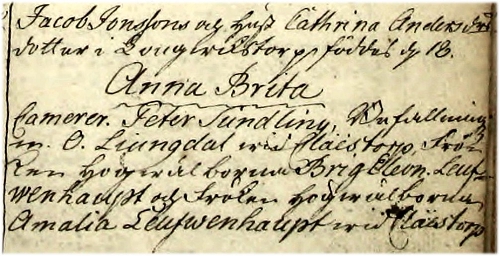 Jacob Jonssons och hust. Cathrina Anders
dotter i Longwikstorp, föddes d. 18.
Anna Brita
Camerer. Peter Sundling,
m. O. Liungdal wid Claëstorp, Frö
ken Högwälborna Brig. Eleon. Leuf-
wenhaupt och Fröken Högwälborna
Amalia Leufwenhaupt wid Claëstorp